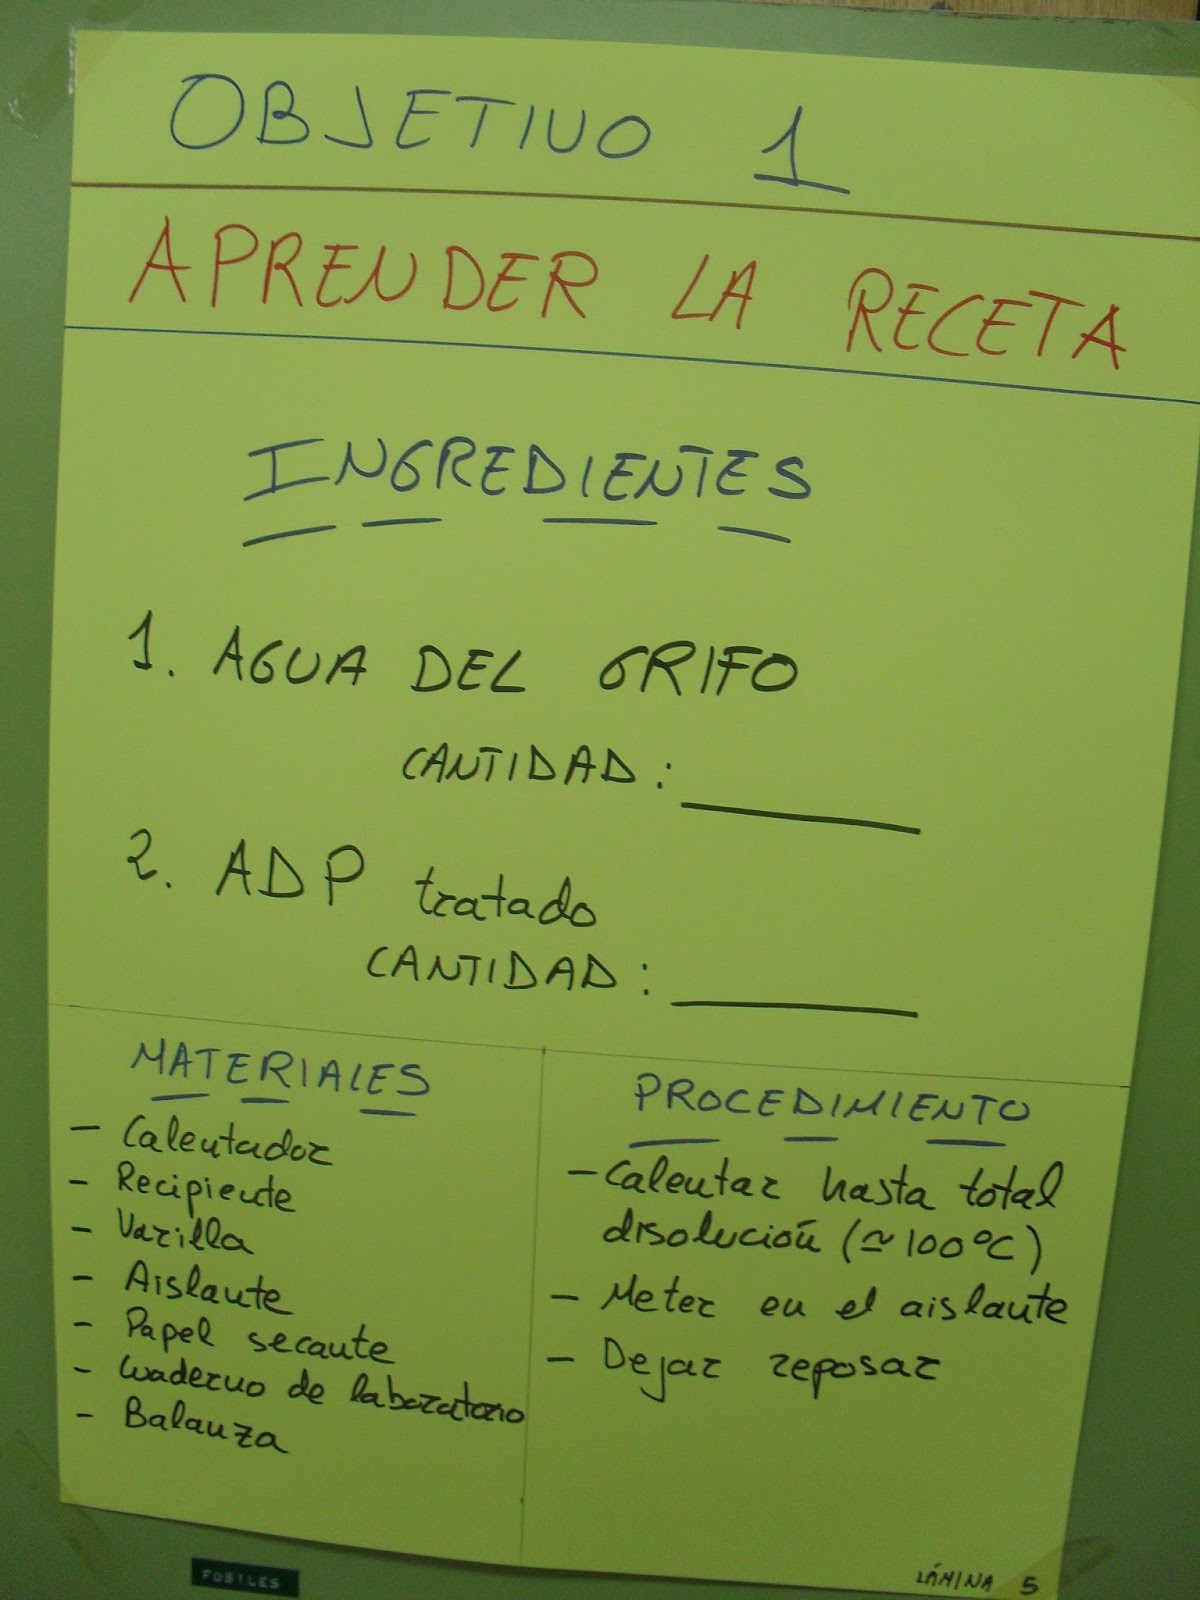 OBJETIVO 1
APRENDER LA RECETA
INGREDIENTES
1. AGUA DEL GRIFO
CANTIDAD: ______
2. ADP tratado
CANTIDAD: ______
MATERIALES
- Calentador
- Recipiente
- Varilla
- Aislante
- Papel secante
- Cuaderno de laboratorio
- Balanza
PROCEDIMIENTO
- Calentar hasta total
disolución (≃100ºC)
- Meter en el aislante
- Dejar reposar
LÁMINA 5
FOSILES